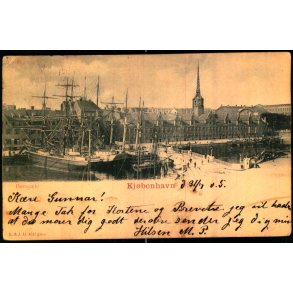 Børsgade
Kjøbenhavn d 24/7 05.
Kære Gunnar!
Mange Tak for Kortene og Brevet, jeg vil haabe
at du morer dig godt derovre sender jeg dig min
Hilsen M. P.